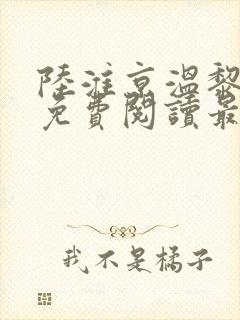 陸淮京溫黎
免費閱讀最
我不是橘子